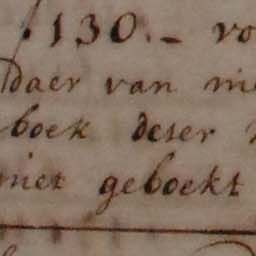 130.– vo
daer van ni
boek deser
niet geboekt